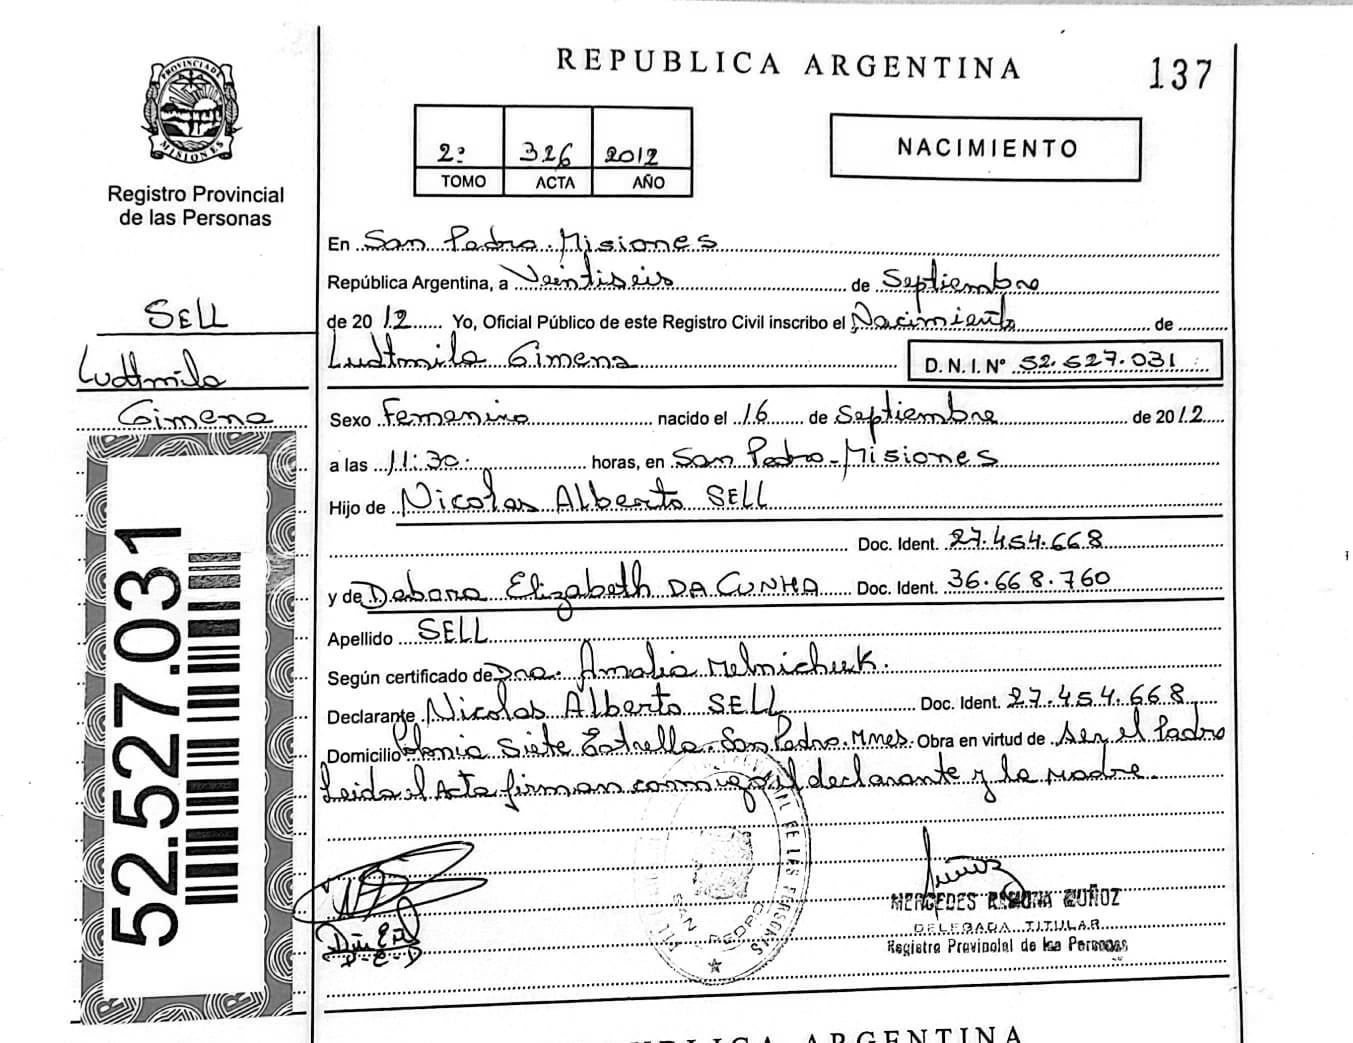 REPUBLICA ARGENTINA
137
PROVINCIA DE MISIONES
Registro Provincial
de las Personas
2º 326 2012
TOMO ACTA AÑO
NACIMIENTO
SELL
Ludtmila
Gimena
52.527.031
En San Pedro. Misiones
República Argentina, a Veintiseis de Septiembre
de 2012 Yo, Oficial Público de este Registro Civil inscribo el Nacimiento de
Ludtmila Gimena D. N. I. Nº 52.527.031
Sexo Femenino nacido el 16 de Septiembre de 2012
a las 11:30. horas, en San Pedro - Misiones
Hijo de Nicolas Alberto SELL
Doc. Ident. 27.454.668
y de Debora Elizabeth DA CUNHA Doc. Ident. 36.668.760
Apellido SELL
Según certificado de Dra. Amalia Melnichuk.
Declarante Nicolas Alberto SELL Doc. Ident. 27.454.668
Domicilio Colonia Siete Estrella. San Pedro. Mnes. Obra en virtud de ser el Padre
Leida el Acta firman conmigo el declarante y la madre.
SAN PEDRO
DE LAS PERSONAS
MERCEDES RAMONA MUÑOZ
DELEGADA TITULAR
Registro Provincial de las Personas
REPUBLICA ARGENTINA